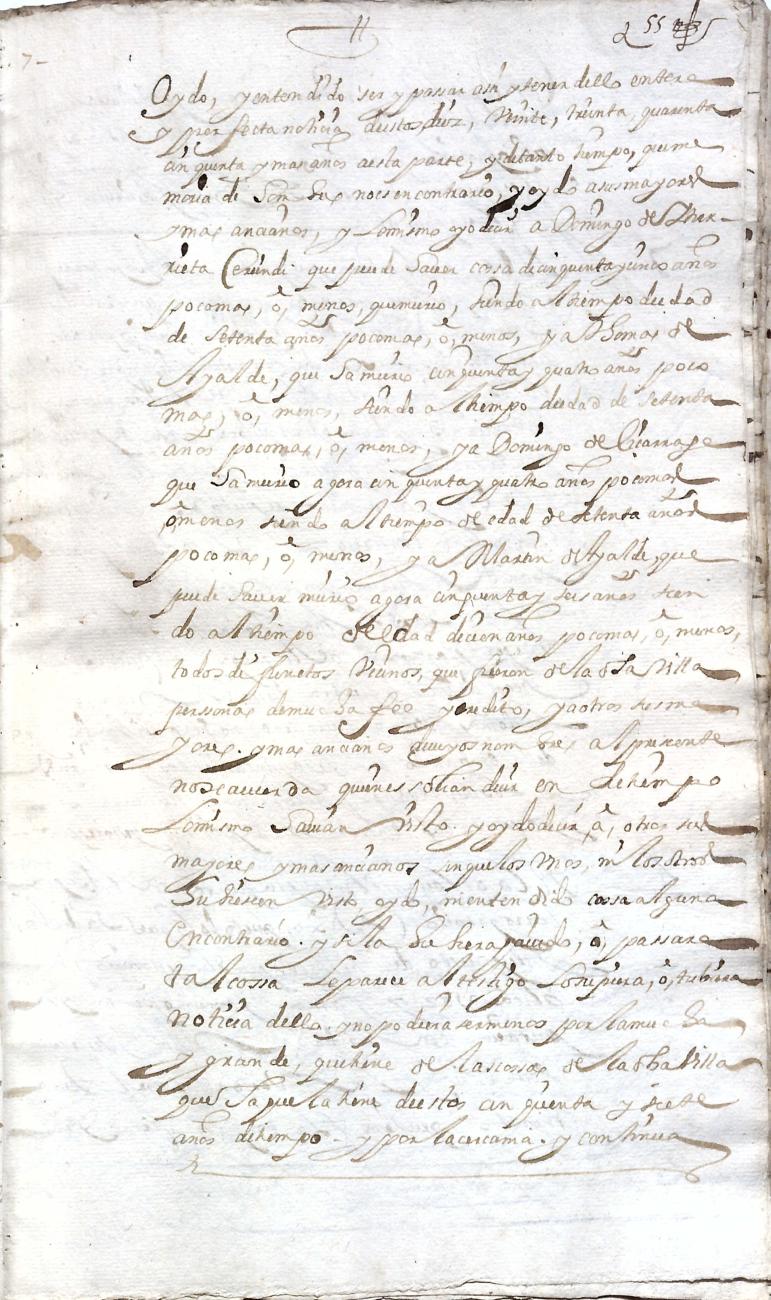 Oydo, y entendido ser y passar asi y tener dello entera
y perfecta noticia destos diez, veinte, treinta, quarenta
cinquenta y mas años aesta parte, y de tanto tiempo, que me
moria de hombres no es en contrario, y oydo a sus mayores
y mas ancianos, y lo mismo oyo decir a Domingo de
rieta que puede haver cossa de cinquenta y cinco años
poco mas, o, menos, que murio, siendo al tiempo de edad
de setenta años poco mas, o, menos, y a Thomas de
Ayalde, que ha murio cinquenta y quatro años poco
mas, o, menos, siendo al tiempo de edad de setenta
años poco mas, o, menos, y a Domingo de Liçarraga
que ha murio agora cinquenta y quatro años poco mas
o, menos siendo al tiempo de edad de setenta años
poco mas, o, menos, y a Martin de Ayalde, que
puede haver murio agora cinquenta y seis años sien
do al tiempo de edad de cien años poco mas, o, menos,
todos defunctos vecinos, que fueron de la dha villa
personas de mucha fee y credito, y a otros sus ma
yores. y mas ancianos cuyos nombres al presente
no se acuerda quienes solian decir en su tiempo
lo mismo havian visto. y oydo decir, a, otros sus
mayores y mas ancianos sin que los unos, ni los otros
hubiessen visto, oydo, ni entendido cossa alguna
en contrario. y si la hubiera havido, o, passara
tal cossa le parece al testigo lo supiera, o, tubiera
noticia della. y no podiera ser menos por la mucha
y grande, que tiene de las cossas de la dha villa
que ha que la tiene de estos cinquenta y siete
años de tiempo. y por la cercania. y continua